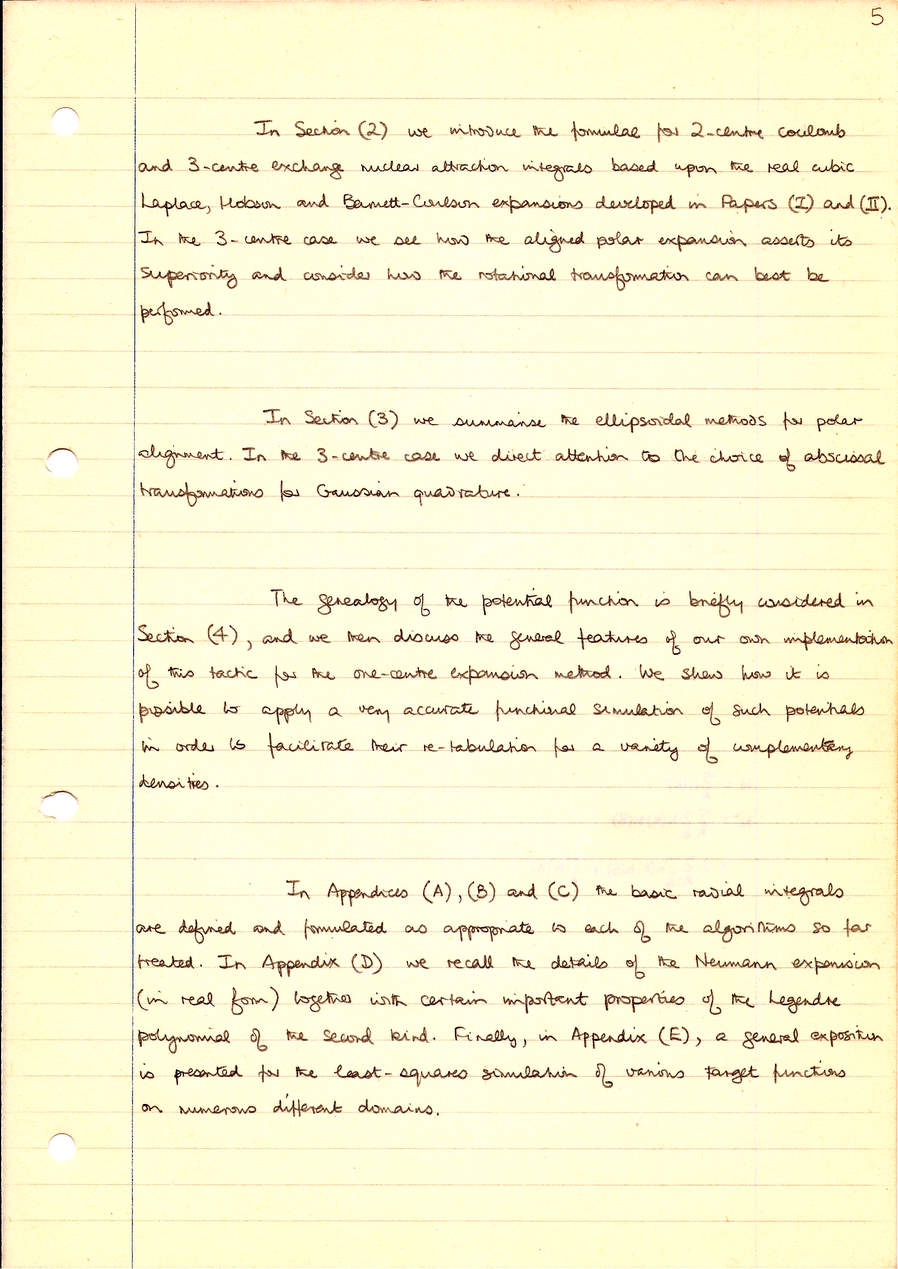 5
In Section (2) we introduce the formulae for 2-centre coulomb
and 3-centre exchange nuclear attraction integrals based upon the real cubic
Laplace, Hobson and Barnett-Coulson expansions developed in Papers (I) and (II).
In the 3-centre case we see how the aligned polar expansion asserts its
superiority and consider how the rotational transformation can best be
performed.
In Section (3) we summarise the ellipsoidal methods for polar
alignment. In the 3-centre case we direct attention to the choice of abscissal
transformations for Gaussian quadrature.
The genealogy of the potential function is briefly considered in
Section (4), and we then discuss the general features of our own implementation
of this tactic for the one-centre expansion method. We shew how it is
possible to apply a very accurate functional simulation of such potentials
in order to facilitate their re-tabulation for a variety of complementary
densities.
In Appendices (A), (B) and (C) the basic radial integrals
are defined and formulated as appropriate to each of the algorithms so far
treated. In Appendix (D) we recall the details of the Neumann expansion
(in real form) together with certain important properties of the Legendre
polynomial of the second kind. Finally, in Appendix (E), a general exposition
is presented for the least-squares simulation of various target functions
on numerous different domains.